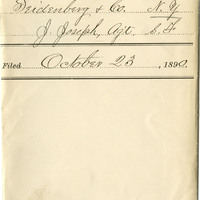 Deidenberg & Co. N.Y
J. Joseph, Agt. S.F
Filed October 23, 1890.